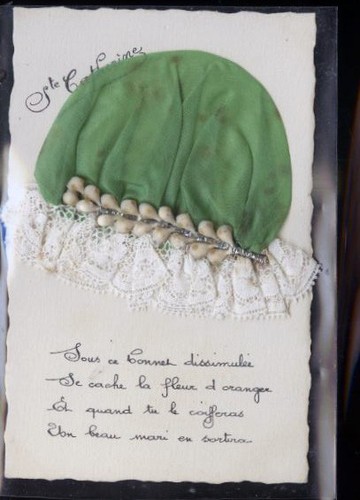 Ste Catherine
Sous ce bonnet dissimulée
Se cache la fleur d oranger
Et quand tu le coifferas
Un beau mari en sortira